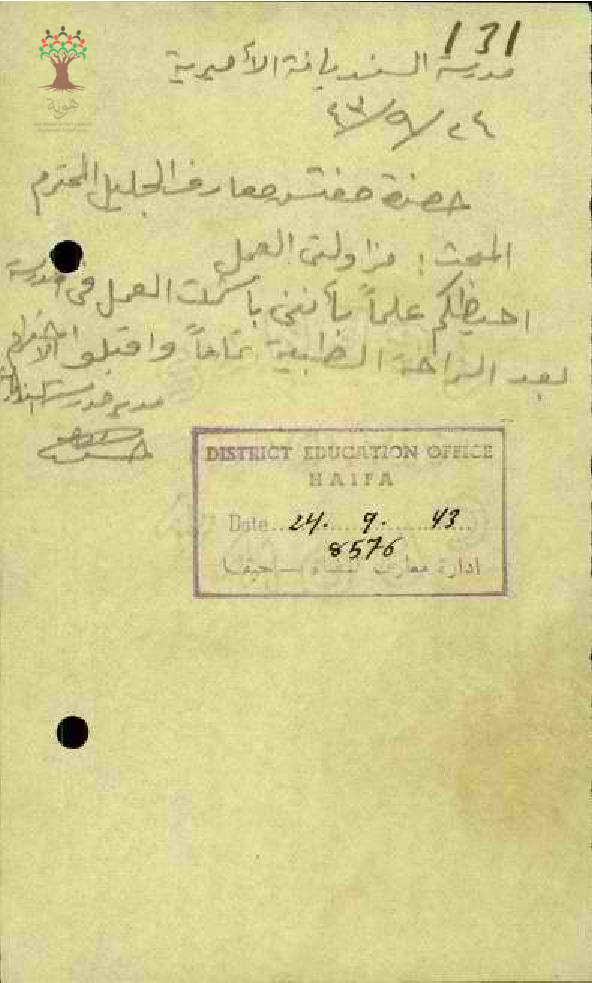 131
مدرسة السنديانة الأميرية
٢٤/٩/٤٣
حضرة مفتش معارف الجليل المحترم
المبحث : مزاولتي العمل
احيطكم علماً بأنني باشرت العمل في مدرسة
بعد الراحة الطبية تماماً واقبلوا الاحترام
مدير مدرسة السنديانة
DISTRICT EDUCATION OFFICE
HAIFA
Date 24. 9. 43
8576
ادارة معارف لواء حيفا
هوية